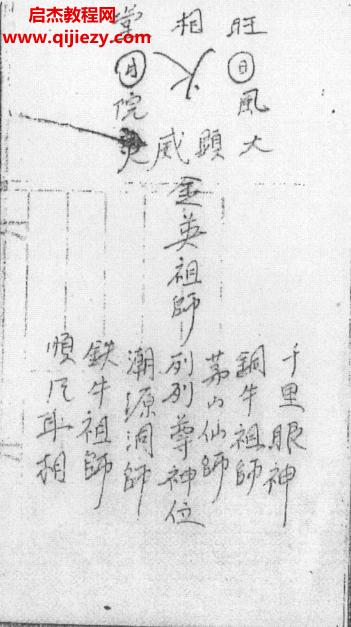 启杰教程网
www.qijiezy.com
旺日風
相火
堂月院
大顯威灵
千里眼神
銅牛祖師
茅山仙師
金英祖師列列尊神位
潮源洞師
鉄牛祖師
順风耳相